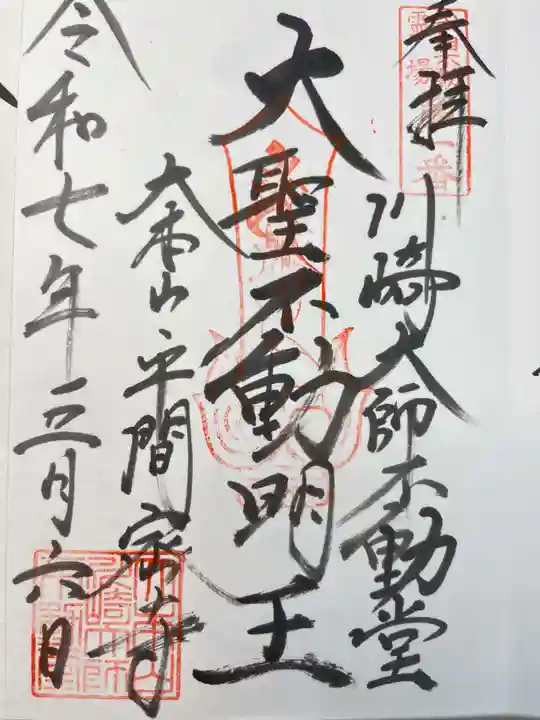 奉拝
川崎大師不動堂
大聖不動明王
大本山平間密寺
令和七年三月六日